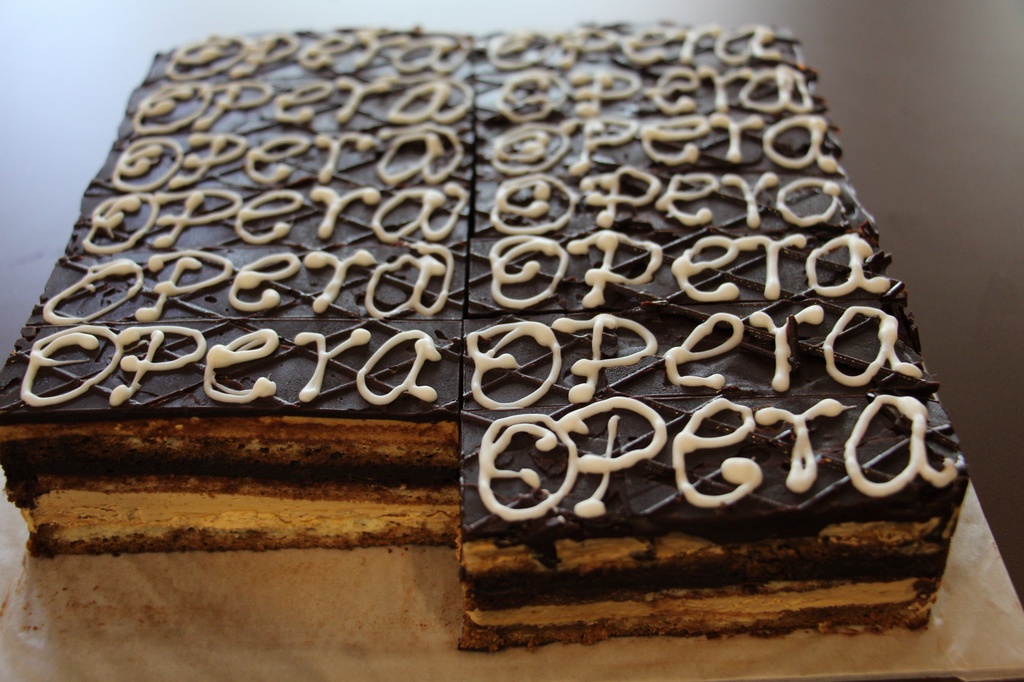 Opera Opera
Opera Opera
Opera Opera
Opera Opera
Opera Opera
Opera Opera
Opera